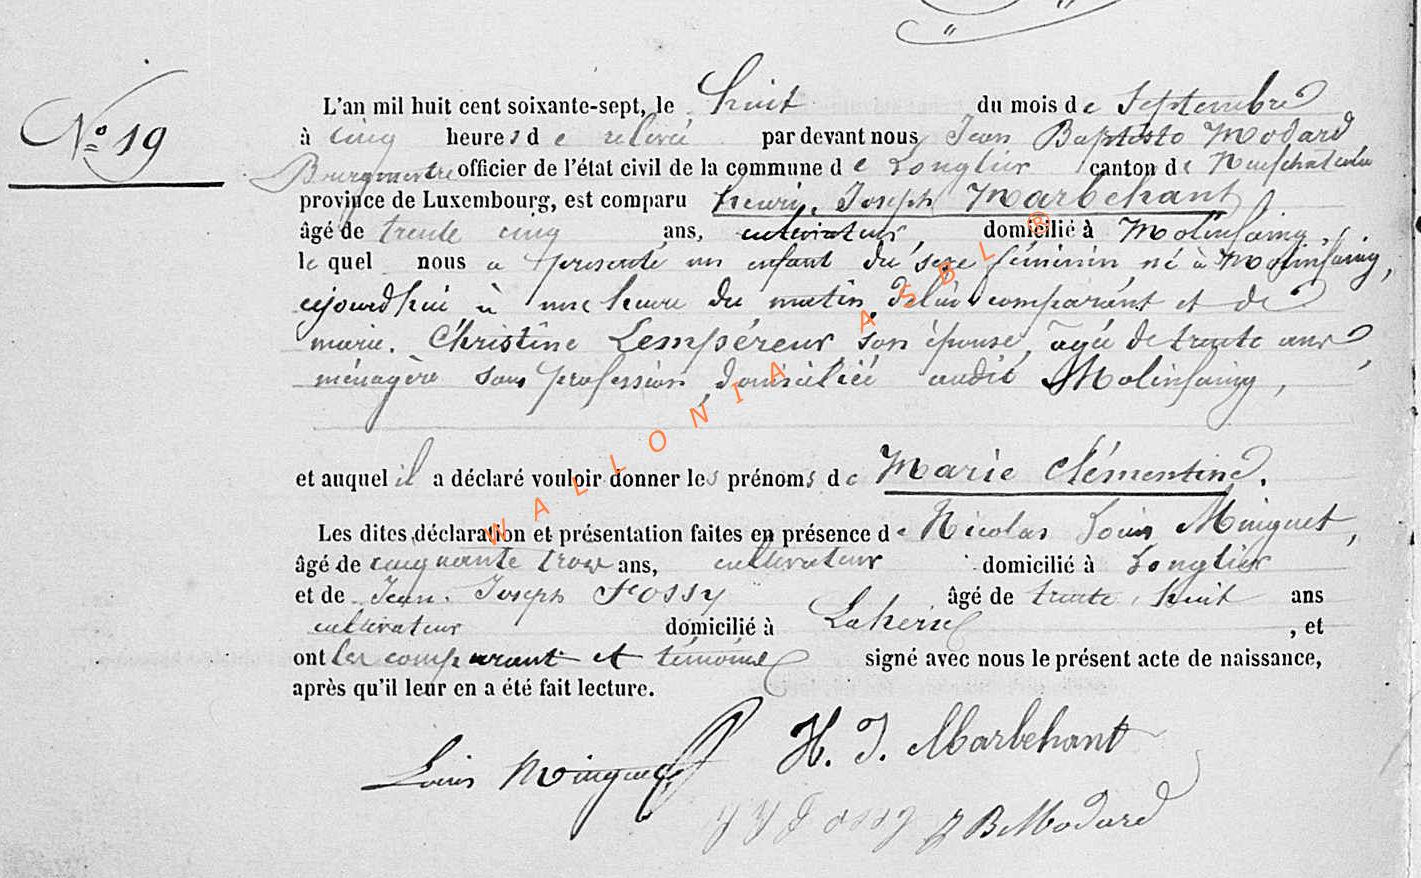 N° 19
L'an mil huit cent soixante-sept, le huit du mois de Septembre
à cinq heures de relevée par devant nous Jean Baptiste Modard
Bourgmestre officier de l'état civil de la commune de Longlier canton de Neufchateau
province de Luxembourg, est comparu henri, Joseph Marbehant
âgé de trente cinq ans, cultivateur, domicilié à Molinfaing,
lequel nous a présenté un enfant du sexe féminin né à Molinfaing,
aujourd'hui à une heure du matin, de lui comparant et de
marie. Christine Lempéreur son épouse, agée de trente ans
ménagère sans profession, domiciliée audit Molinfaing,
et auquel il a déclaré vouloir donner les prénoms de Marie Clémentine.
Les dites déclaration et présentation faites en présence de Nicolas Louis Minguet,
âgé de cinquante trois ans, cultivateur domicilié à Longlier
et de Jean. Joseph Fossy âgé de trente, huit ans
cultivateur domicilié à Laherie, et
ont les comparant et témoins signé avec nous le présent acte de naissance,
après qu'il leur en a été fait lecture.
Louis Minguet H. J. Marbehant
J J Fossy J B Modard
WALLONIA ASBL ®